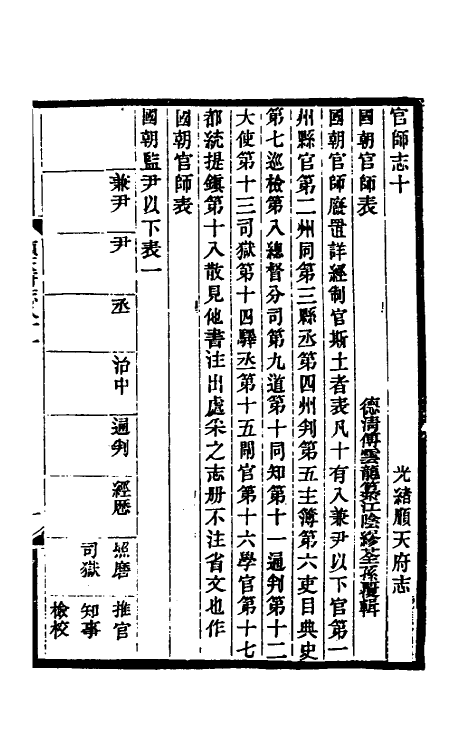 官師志十
光緒順天府志
國朝官師表
德清傅雲龍纂江陰繆荃孫覆輯
國朝官師廢置詳經制官斯土者表凡十有八兼尹以下官第一
州縣官第二州同第三縣丞第四州判第五主簿第六吏目典史
第七巡檢第八總督分司第九道第十同知第十一通判第十二
大使第十三司獄第十四驛丞第十五閘官第十六學官第十七
都統提鎮第十八散見他書注出處采之志册不注省文也作
國朝官師表
國朝監尹以下表一
兼尹
尹
丞
治中
通判
經歷
照磨
司獄
推官
知事
檢校